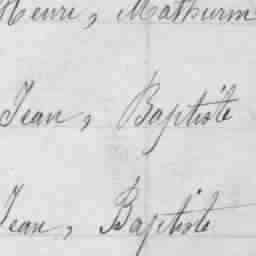 Henri, Mathurin
Jean, Baptiste
Jean, Baptiste